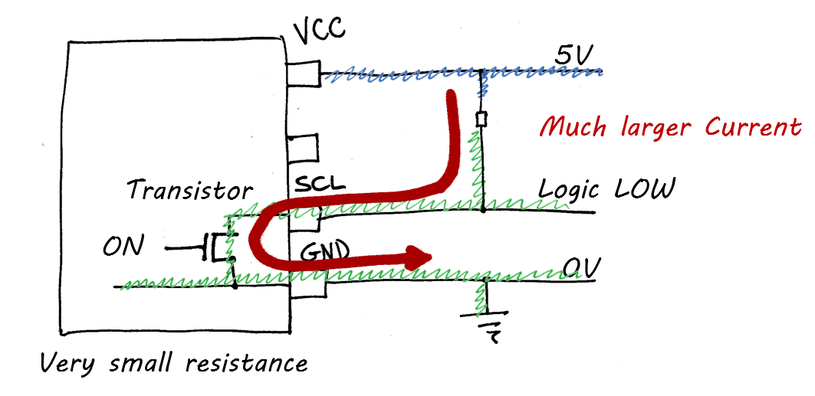 VCC
5V
Much larger Current
Transistor
SCL
Logic LOW
ON
GND
0V
Very small resistance